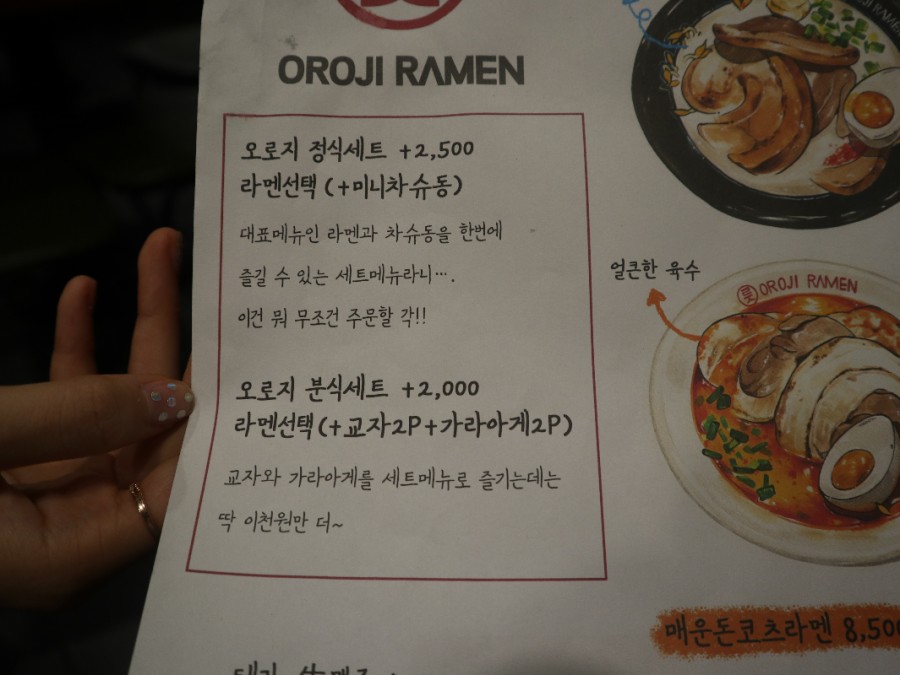 OROJI RAMEN
오로지 정식세트 +2,500
라멘선택 (+미니차슈동)
대표메뉴인 라멘과 차슈동을 한번에
즐길 수 있는 세트메뉴라니….
이건 뭐 무조건 주문할 각!!
오로지 분식세트 +2,000
라멘선택(+교자2P+가라아게2P)
교자와 가라아게를 세트메뉴로 즐기는데는
딱 이천원만 더~
OROJI RAMEN
얼큰한 육수
OROJI RAMEN
매운돈코츠라멘 8,500